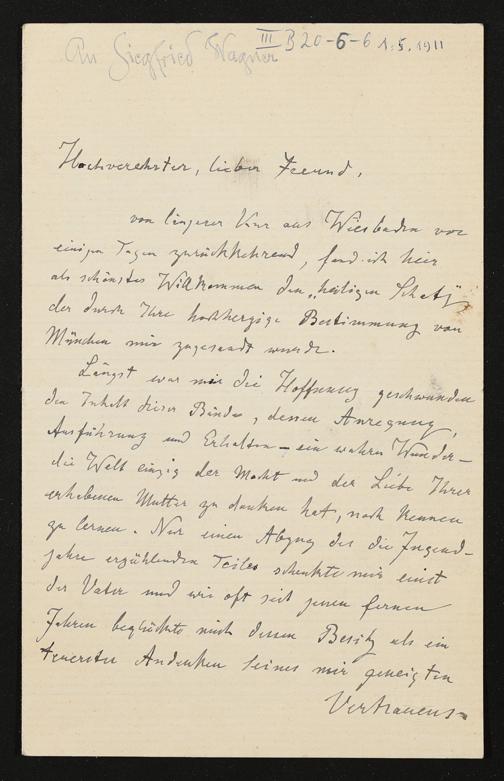 An Siegfried Wagner III B 20-6-6 1.5.1911
Hochverehrter, lieber Freund,
von längerer Kur aus Wiesbaden vor
einigen Tagen zurückkehrend, fand ich hier
als schönstes Willkommen den „heiligen Schatz“,
der durch Ihre hochherzige Bestimmung von
München mir zugesandt wurde.
Längst war mir die Hoffnung geschwunden
den Inhalt dieser Bände, dessen Anregung,
Ausführung und Erhalten – ein wahres Wunder –
die Welt einzig der Macht und der Liebe Ihrer
erhabenen Mutter zu danken hat, noch kennen
zu lernen. Nur einen Abzug des die Jugend-
jahre erzählenden Teiles schenkte mir einst
der Vater und wie oft seit jenen fernen
Jahren beglückte mich dessen Besitz als ein
teuerstes Andenken seines mir geneigten
Vertrauens